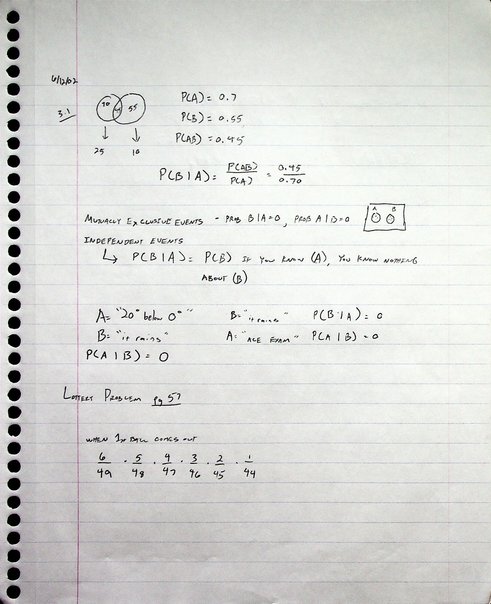 6/12/02
3.1
70 45 55
25 10
P(A) = 0.7
P(B) = 0.55
P(AB) = 0.45
P(B|A) = P(AB)/P(A) = 0.45/0.70
MUTUALLY EXCLUSIVE EVENTS - PROB B|A=0, PROB A|B=0
A B
INDEPENDENT EVENTS
↳ P(B|A) = P(B) IF YOU KNOW (A), YOU KNOW NOTHING
ABOUT (B)
A= "20° below 0°" B= "it rains" P(B|A) = 0
B= "it rains" A: "ACE EXAM" P(A|B) = 0
P(A|B) = 0
LOTTERY PROBLEM pg 57
WHEN 1st BALL COMES OUT
6/49 · 5/48 · 4/47 · 3/46 · 2/45 · 1/44